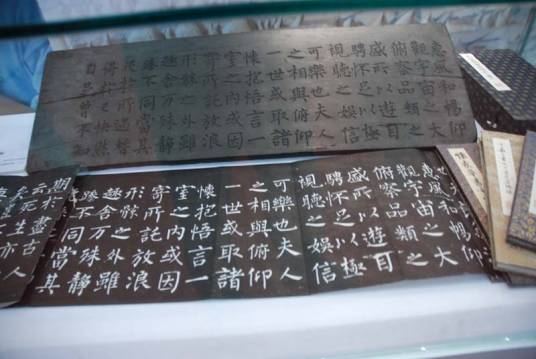 惠風和暢仰
觀宇宙之大
俯察品類之
盛所以遊目
騁懷足以極
視聽之娛信
可樂也夫人
之相與俯仰
一世或取諸
懷抱悟言一
室之內或因
寄所託放浪
形骸之外雖
趣舍万殊靜
躁不同當其
欣於所遇暫
得於己快然
自足曾不知
風和暢仰
觀宇宙之大
俯察品類之
盛所以遊目
騁懷足以極
視聽之娛信
可樂也夫人
之相與俯仰
一世或取諸
懷抱悟言一
室之內或因
寄所託放浪
形骸之外雖
趣舍万殊靜
躁不同當其
期於盡古人
云死生亦